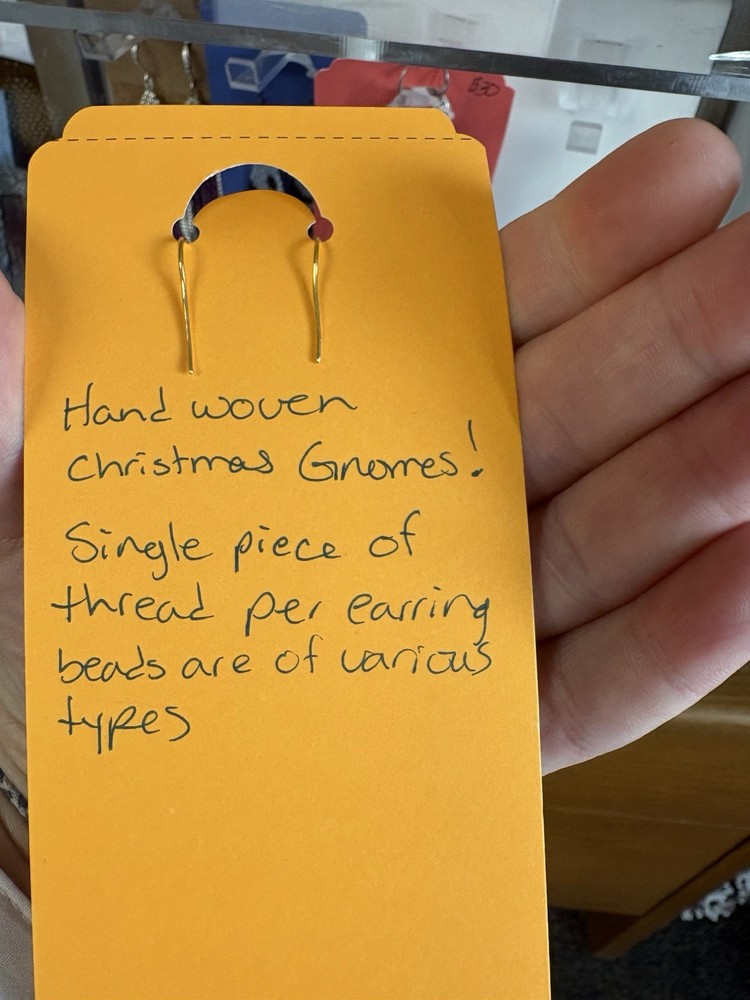 $30
Hand woven
Christmas Gnomes!
Single piece of
thread per earring
beads are of various
types